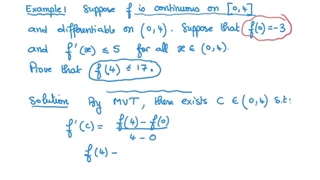 Example 1 Suppose f is continuous on [0,4]
and differentiable on (0,4). Suppose that f(0)=-3
and f'(x) ≤ 5 for all x ∈ (0,4).
Prove that f(4) ≤ 17.
Solution By MVT, there exists C ∈ (0,4) s.t:
f'(c) = f(4) - f(0) / 4 - 0
f(4) -